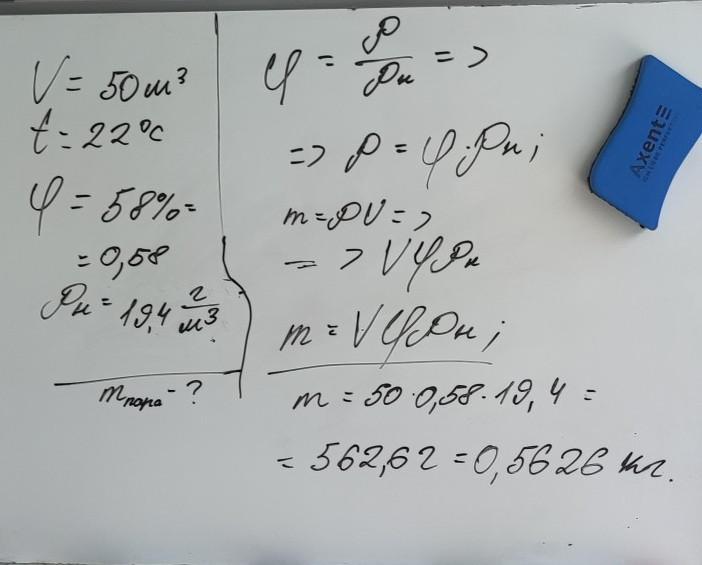 V = 50 м³
t = 22°C
φ = 58% =
= 0,58
ρн = 19,4 г/м³
mпара - ?
φ = ρ/ρн =>
=> ρ = φ·ρн;
m = ρV =>
=> Vφρн
m = Vφρн;
m = 50·0,58·19,4 =
= 562,6 г = 0,5626 кг.
Axent